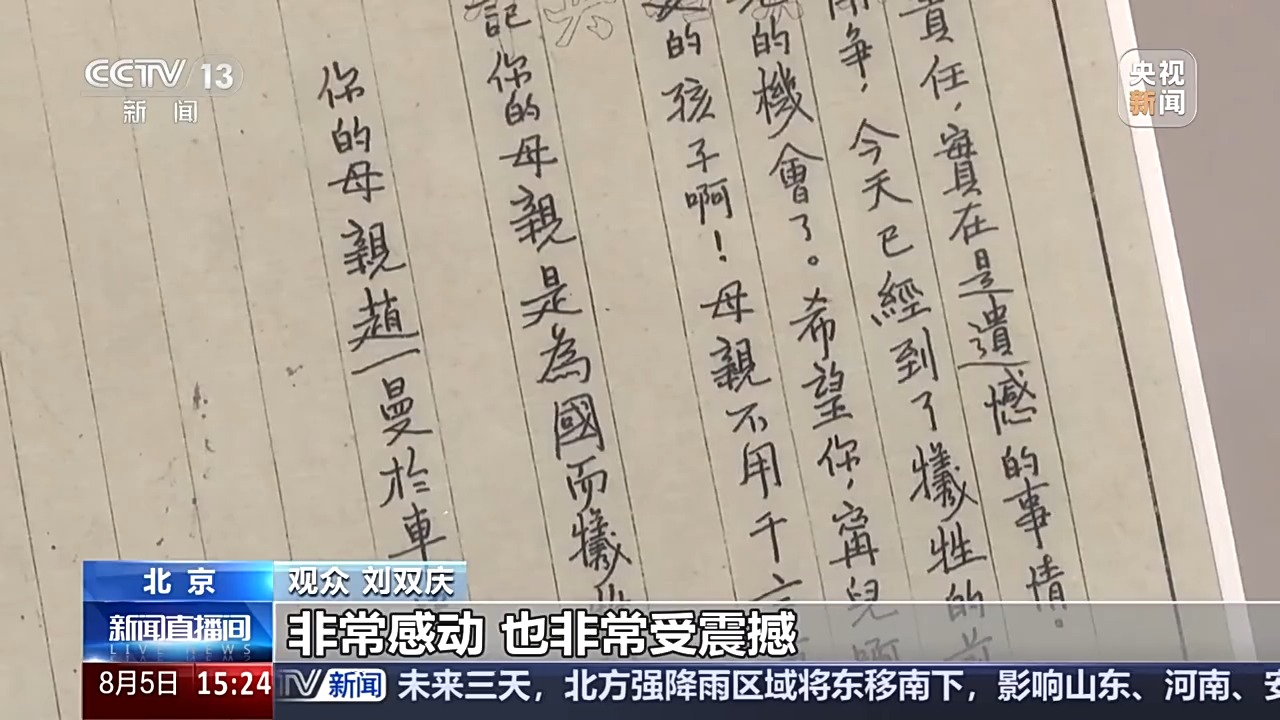 CCTV 13
新闻
央视
新闻
責任，實在是遺憾的事情。
争，今天已經到了犧牲的
的機會了。希望你，甯兒啊
的孩子啊！母親不用千
記你的母親是為國而犧
你的母親趙一曼於車
北京
观众 刘双庆
新闻直播间
LIVE NEWS
非常感动 也非常受震撼
8月5日 15:24
新闻 未来三天，北方强降雨区域将东移南下，影响山东、河南、安